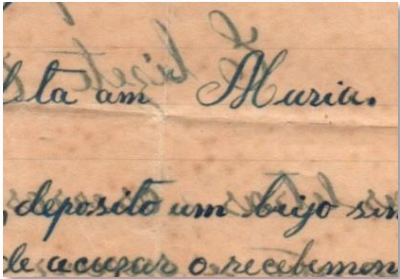 ta am Muria.
deposito um beijo sin
de acuzar o recebimen